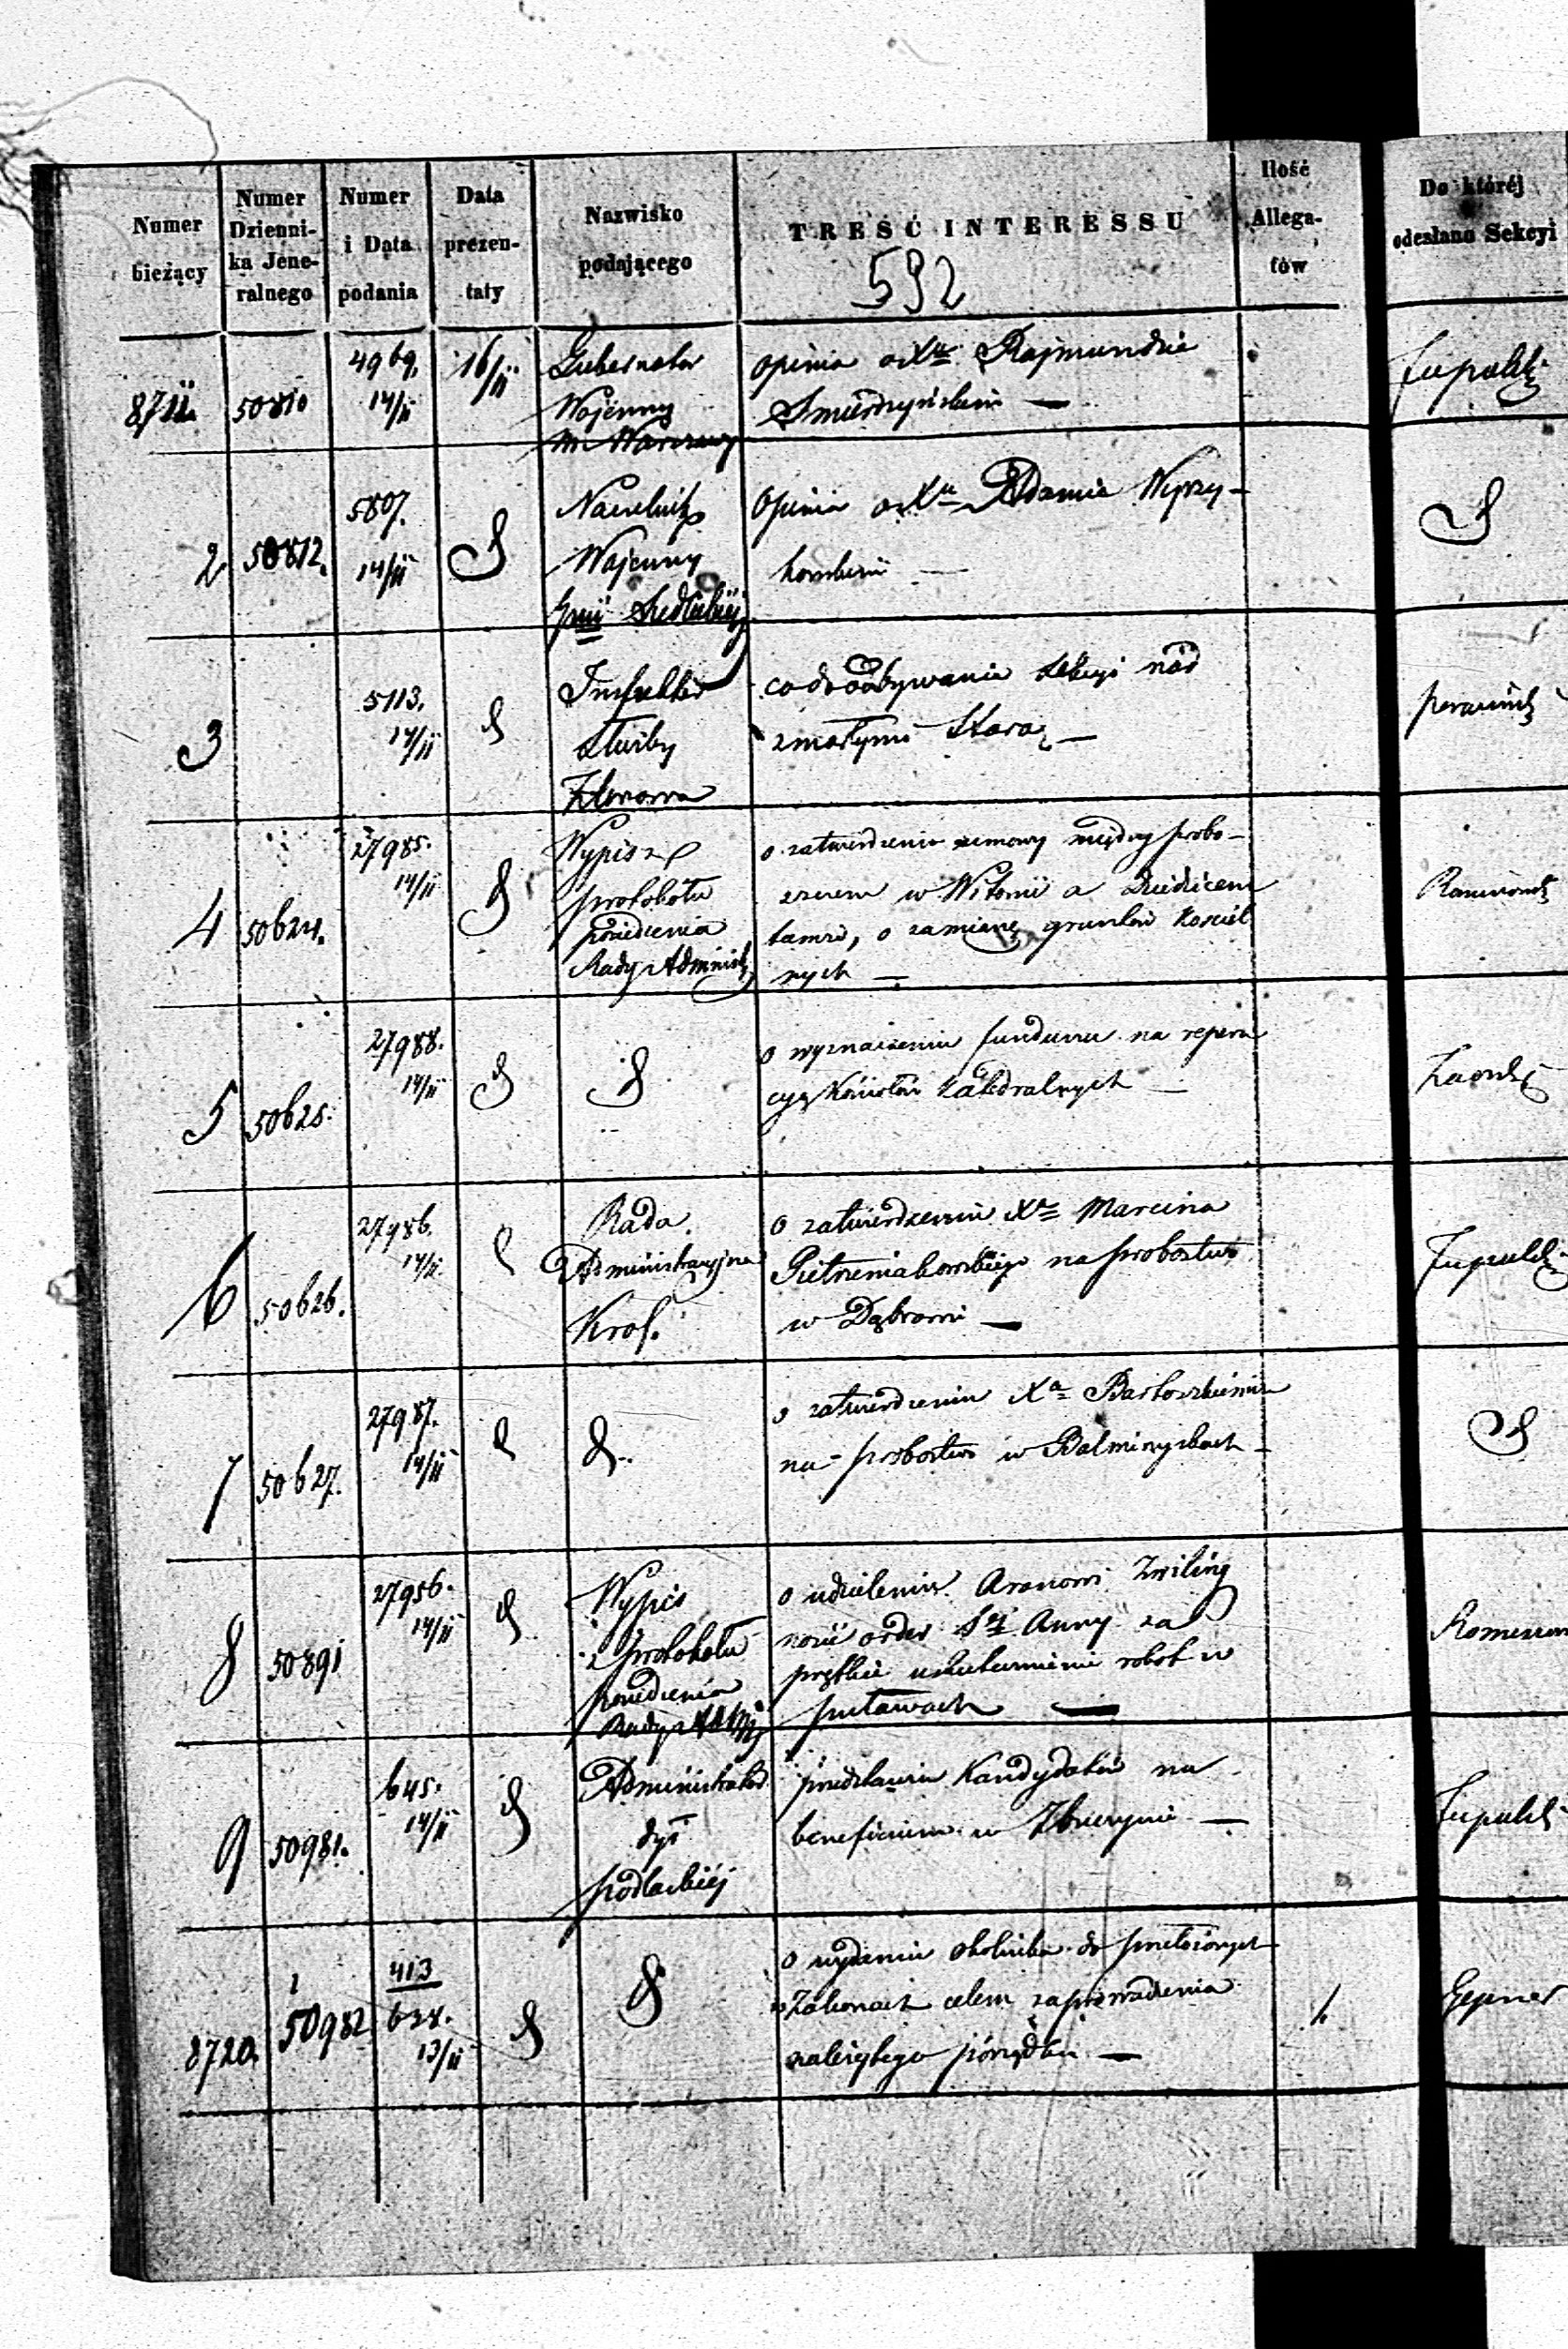 Numer bieżący
Numer Dzienni-ka Jene-ralnego
Numer i Data podania
Data prezen-taty
Nazwisko podającego
TREŚĆ INTERESSU
Ilość Allega-tów
Do któréj odesłano Sekcyi
592
8711. 50810 4969. 14/11 16/11
Gubernator
Wojenny
m. Warszawy
opinia o Xu Rajmundzie
2 50812. 5807. 14/11
Naczelnik
Wojenny
Siedleckiéj
Opinia o Xu Adamie Wyrzy-
kowskim —
3 5113. 14/11
Służby
Zdrowia
nad
zmarłymi —
4 50624. 27985. 14/11
Wypis z
protokółu
posiedzenia
Rady Administ
o zatwierdzenie umowy między probo-
szczem w Witonii a dziedzicem
tamże, o zamianę gruntów kościel
nych —
5 50625. 27988. 14/11
o wyznaczeniu funduszu na repera
cyą kościołów katedralnych —
6 50626. 27986. 14/11
Rada
Administracyjna
Król.
o zatwierdzeniu Xa Marcina
na probostwo
w Dąbrowie —
7 50627. 27987. 14/11
o zatwierdzeniu Xa
na probostwo w
8 50891 27956. 14/11
Wypis
z protokółu
posiedzenia
Rady
o udzieleniu Aronowi Zwiling
order Sej Anny za
prętkie uskutecznienie robót w
puławach —
9 50981. 645. 14/11
Administrator
dyi
podlaskiéj
przedstawia Kandydatów na
beneficium w —
8720. 50982 413
628.
13/11
o wydaniu okólnika do przełożonych
w Zakonach celem zaprowadzenia
należytego porządku —
1.